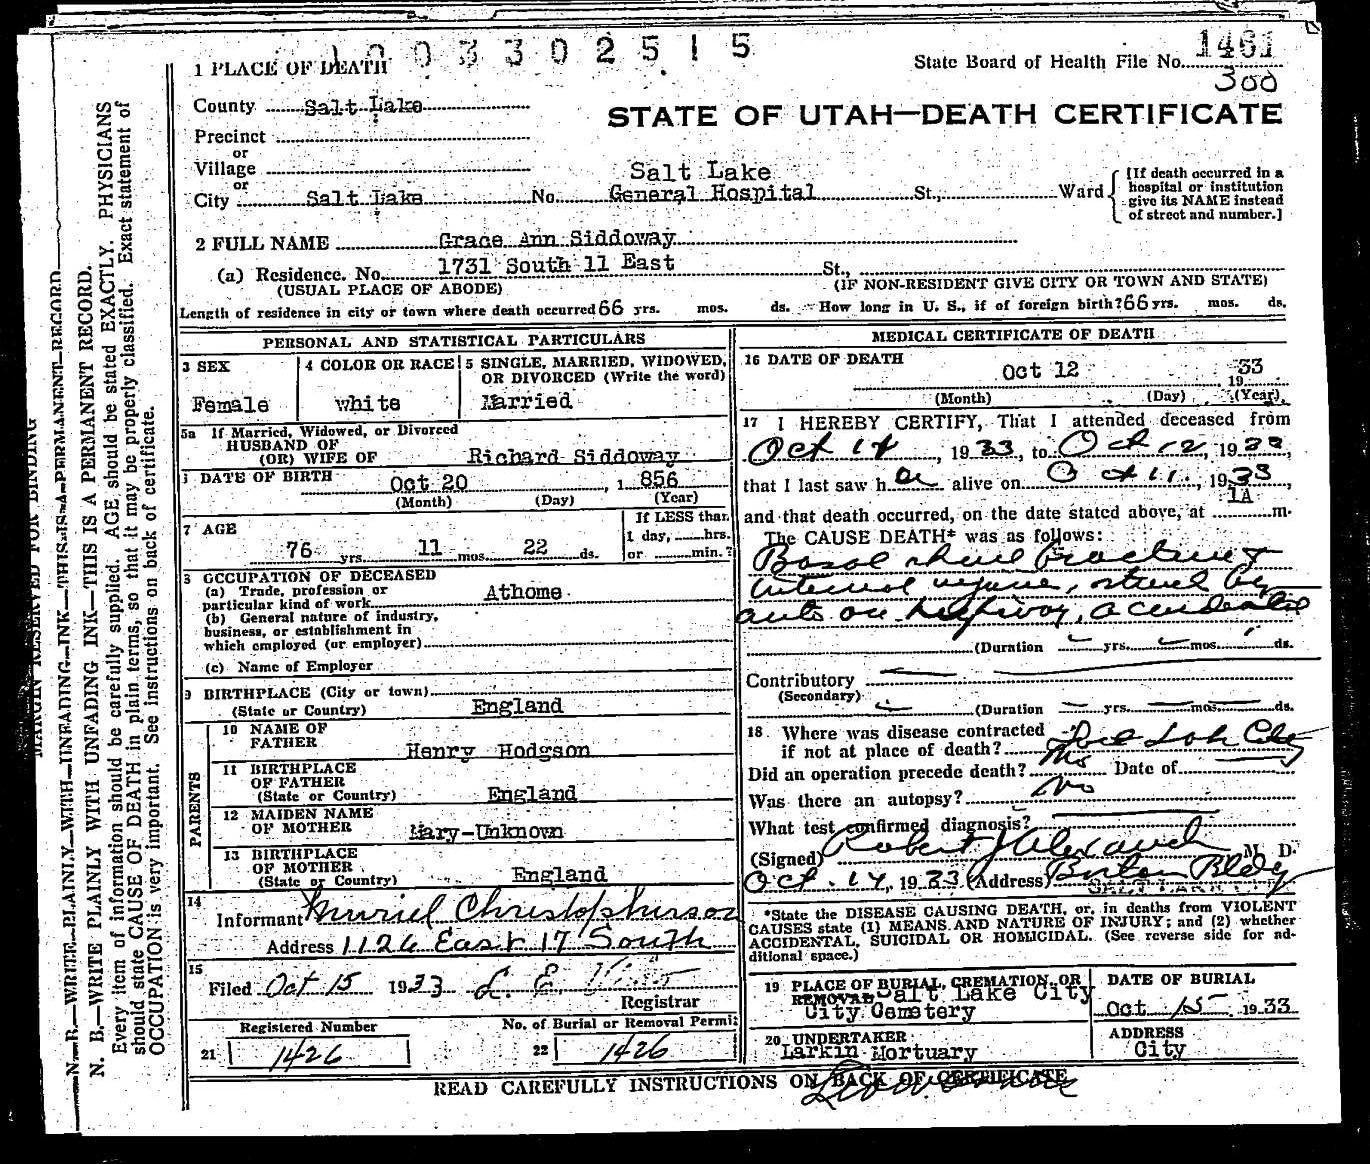 1003302515
State Board of Health File No. 1461
300
1 PLACE OF DEATH
County Salt Lake
STATE OF UTAH—DEATH CERTIFICATE
Precinct
or
Village
or
City Salt Lake No. Salt Lake General Hospital St., Ward
[If death occurred in a hospital or institution give its NAME instead of street and number.]
2 FULL NAME Grace Ann Siddoway
(a) Residence. No. 1731 South 11 East St.,
(USUAL PLACE OF ABODE) (IF NON-RESIDENT GIVE CITY OR TOWN AND STATE)
Length of residence in city or town where death occurred 66 yrs. mos. ds. How long in U. S., if of foreign birth? 66 yrs. mos. ds.
PERSONAL AND STATISTICAL PARTICULARS
3 SEX
Female
4 COLOR OR RACE
white
5 SINGLE, MARRIED, WIDOWED, OR DIVORCED (Write the word)
Married
5a If Married, Widowed, or Divorced
HUSBAND OF
(OR) WIFE OF Richard Siddoway
DATE OF BIRTH Oct 20, 1856
(Month) (Day) (Year)
7 AGE
76 yrs. 11 mos. 22 ds.
If LESS than
1 day, hrs.
or min.?
OCCUPATION OF DECEASED
(a) Trade, profession or
particular kind of work Athome
(b) General nature of industry,
business, or establishment in
which employed (or employer)
(c) Name of Employer
9 BIRTHPLACE (City or town)
(State or Country) England
PARENTS
10 NAME OF FATHER Henry Hodgson
11 BIRTHPLACE OF FATHER
(State or Country) England
12 MAIDEN NAME OF MOTHER Mary-Unknown
13 BIRTHPLACE OF MOTHER
(State or Country) England
14
Informant Muriel Christopherson
Address 1126 East 17 South
15
Filed Oct 15 1933 L. E.
Registrar
Registered Number
21 1426
No. of Burial or Removal Permit
22 1426
MEDICAL CERTIFICATE OF DEATH
16 DATE OF DEATH
Oct 12 1933
(Month) (Day) (Year)
17 I HEREBY CERTIFY, That I attended deceased from
Oct , 1933, to Oct 12, 1933,
that I last saw h alive on Oct 11, 1933,
and that death occurred, on the date stated above, at 1A m.
The CAUSE DEATH* was as follows:
Basal skull fracture &
internal injurie, struck by
auto on highway, accidental
(Duration yrs. mos. ds.
Contributory
(Secondary)
(Duration yrs. mos. ds.
18. Where was disease contracted
if not at place of death? Lake City
Did an operation precede death? No Date of
Was there an autopsy? No
What test confirmed diagnosis?
(Signed) Robert J Alexander M. D.
Oct. 14, 1933 (Address) Boston Bldg
SALT LAKE CITY
*State the DISEASE CAUSING DEATH, or, in deaths from VIOLENT
CAUSES state (1) MEANS AND NATURE OF INJURY; and (2) whether
ACCIDENTAL, SUICIDAL OR HOMICIDAL. (See reverse side for ad-
ditional space.)
19 PLACE OF BURIAL, CREMATION, OR REMOVAL Salt Lake City
City Cemetery
DATE OF BURIAL
Oct 15 1933
20 UNDERTAKER
Larkin Mortuary
ADDRESS
City
READ CAREFULLY INSTRUCTIONS ON BACK OF CERTIFICATE
MARGIN RESERVED FOR BINDING
N. B.—WRITE PLAINLY WITH UNFADING INK—THIS IS A PERMANENT RECORD
N. B.—WRITE PLAINLY WITH UNFADING INK—THIS IS A PERMANENT RECORD.
Every item of information should be carefully supplied. AGE should be stated EXACTLY. PHYSICIANS
should state CAUSE OF DEATH in plain terms, so that it may be properly classified. Exact statement of
OCCUPATION is very important. See instructions on back of certificate.